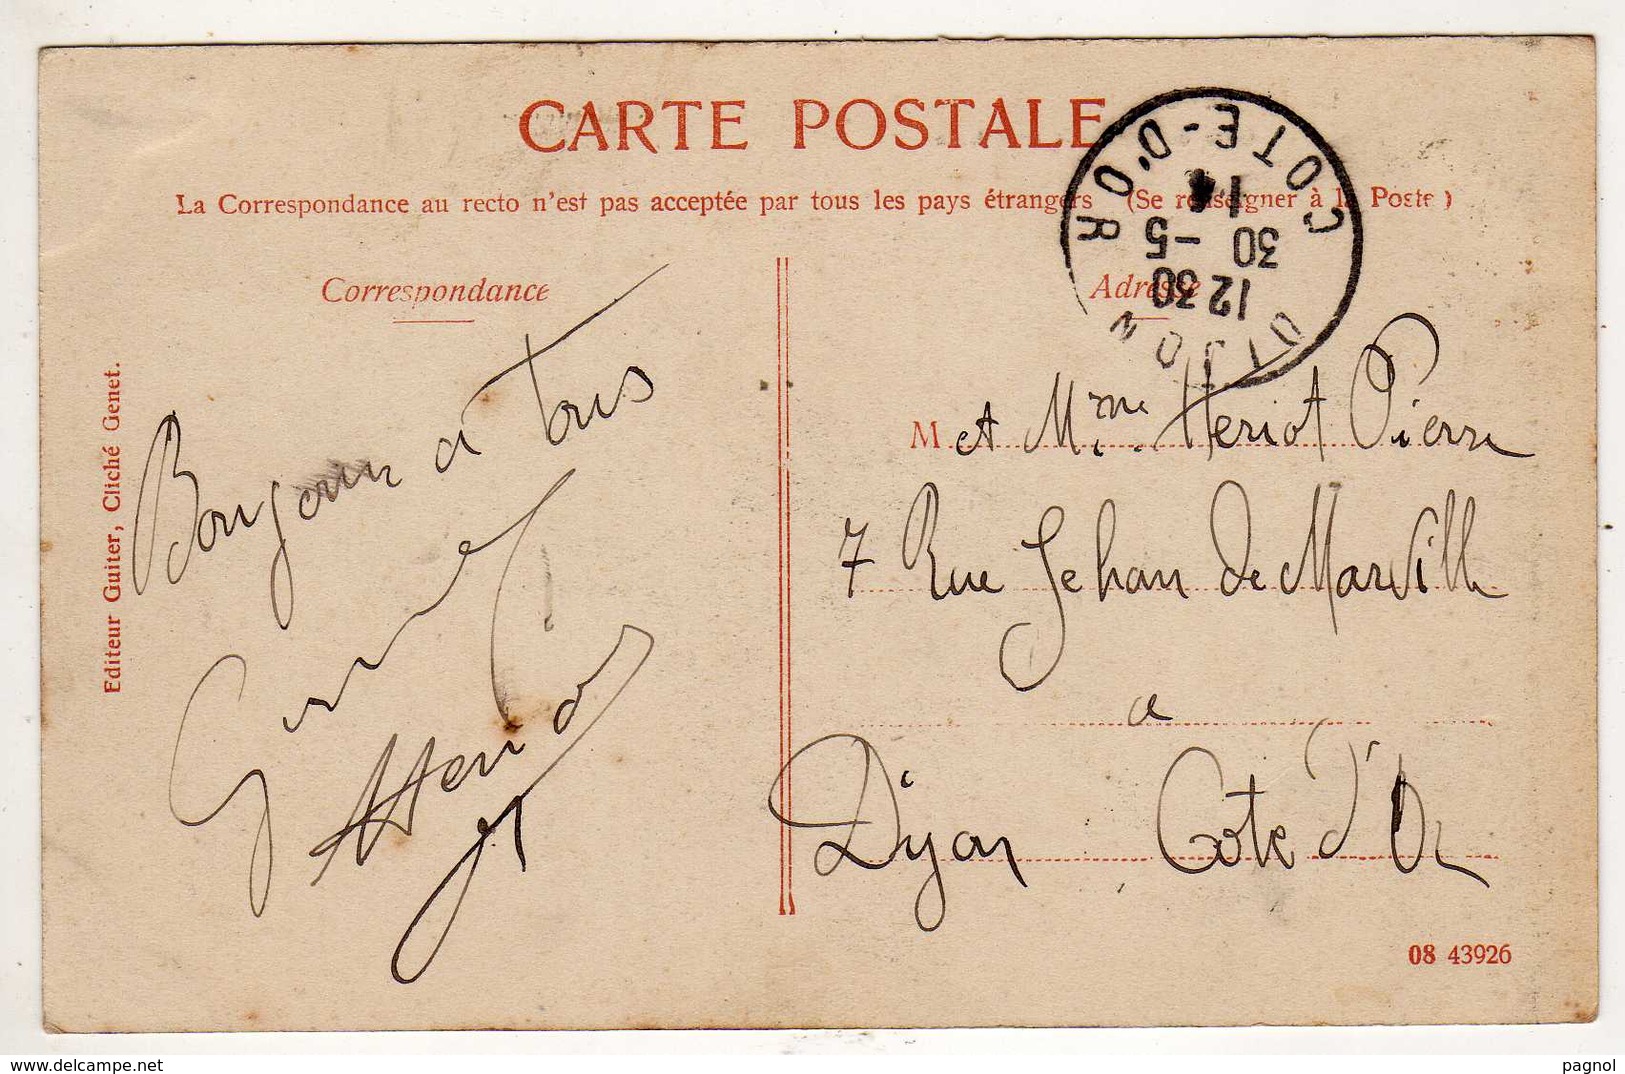 CARTE POSTALE
La Correspondance au recto n'est pas acceptée par tous les pays étrangers (Se renseigner à la Poste)
Correspondance
Adresse
DIJON
COTE-D'OR
12 30
30 -5
14
Editeur Guiter, Cliché Genet.
Bonjour a Tous
M et Mme Heriot Pierre
7 Rue Jehan de Marville
a
Dijon Cote d'Or
08 43926
pagnol